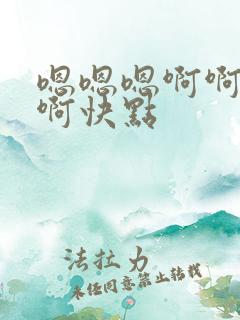 嗯嗯嗯啊啊
啊快點
法拉力
未经同意禁止转载